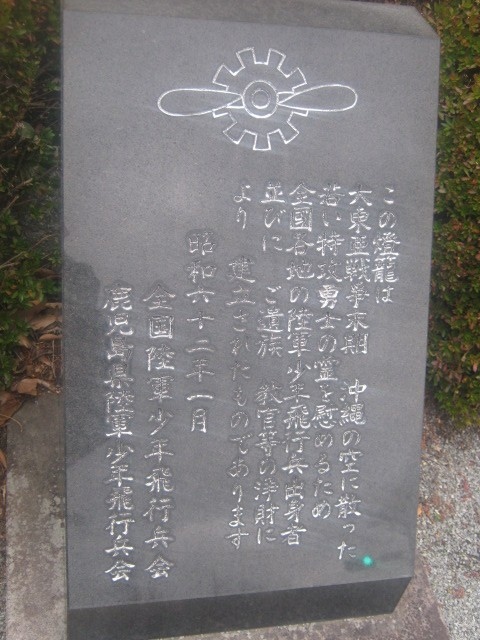 この燈籠は
大東亜戦争末期　沖縄の空に散った
若い特攻勇士の霊を慰めるため
全國各地の陸軍少年飛行兵出身者
並びに　ご遺族　教官等の浄財に
より　建立されたものであります
昭和六十二年一月
全國陸軍少年飛行兵会
鹿児島県陸軍少年飛行兵会